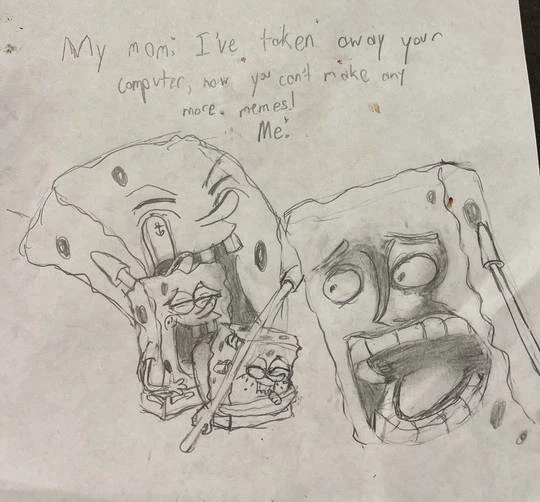 My mom: I've taken away your
computer, now you can't make any
more. memes!
Me: